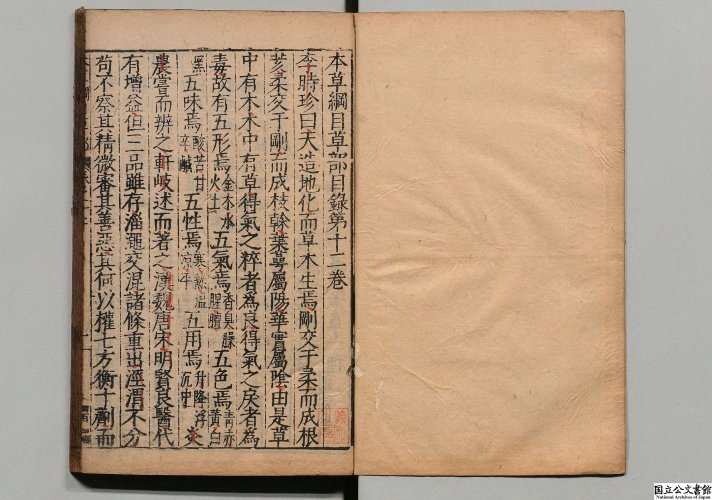 本草綱目草部目錄第十二卷
李時珍曰天造地化而草木生焉剛交于柔而成根
荄柔交于剛而成枝榦葉萼屬陽華實屬陰由是草
中有木木中有草得氣之粹者爲良得氣之戾者爲
毒故有五形焉金木水火土五氣焉香臭臊腥膻五色焉青赤黃白
黑五味焉酸苦甘辛鹹五性焉寒熱溫涼平五用焉升降浮沉中炎
農嘗而辨之軒岐述而著之漢魏唐宋明賢良醫代
有增益但三品雖存淄澠交混諸條重出涇渭不分
苟不察其精微審其善惡其何以權七方衡十劑而
国立公文書館
National Archives of Japan